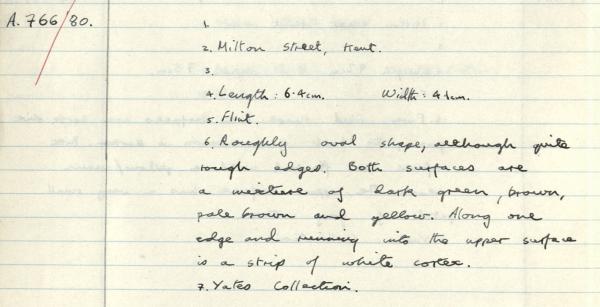 A.766/80.
1.
2. Milton Street, Kent.
3.
4. Length: 6.4cm. Width: 4.1cm.
5. Flint.
6. Roughly oval shape, although quite
rough edges. Both surfaces are
a mixture of dark green, brown,
pale brown and yellow. Along one
edge and running into the upper surface
is a strip of white cortex.
7. Yates Collection.